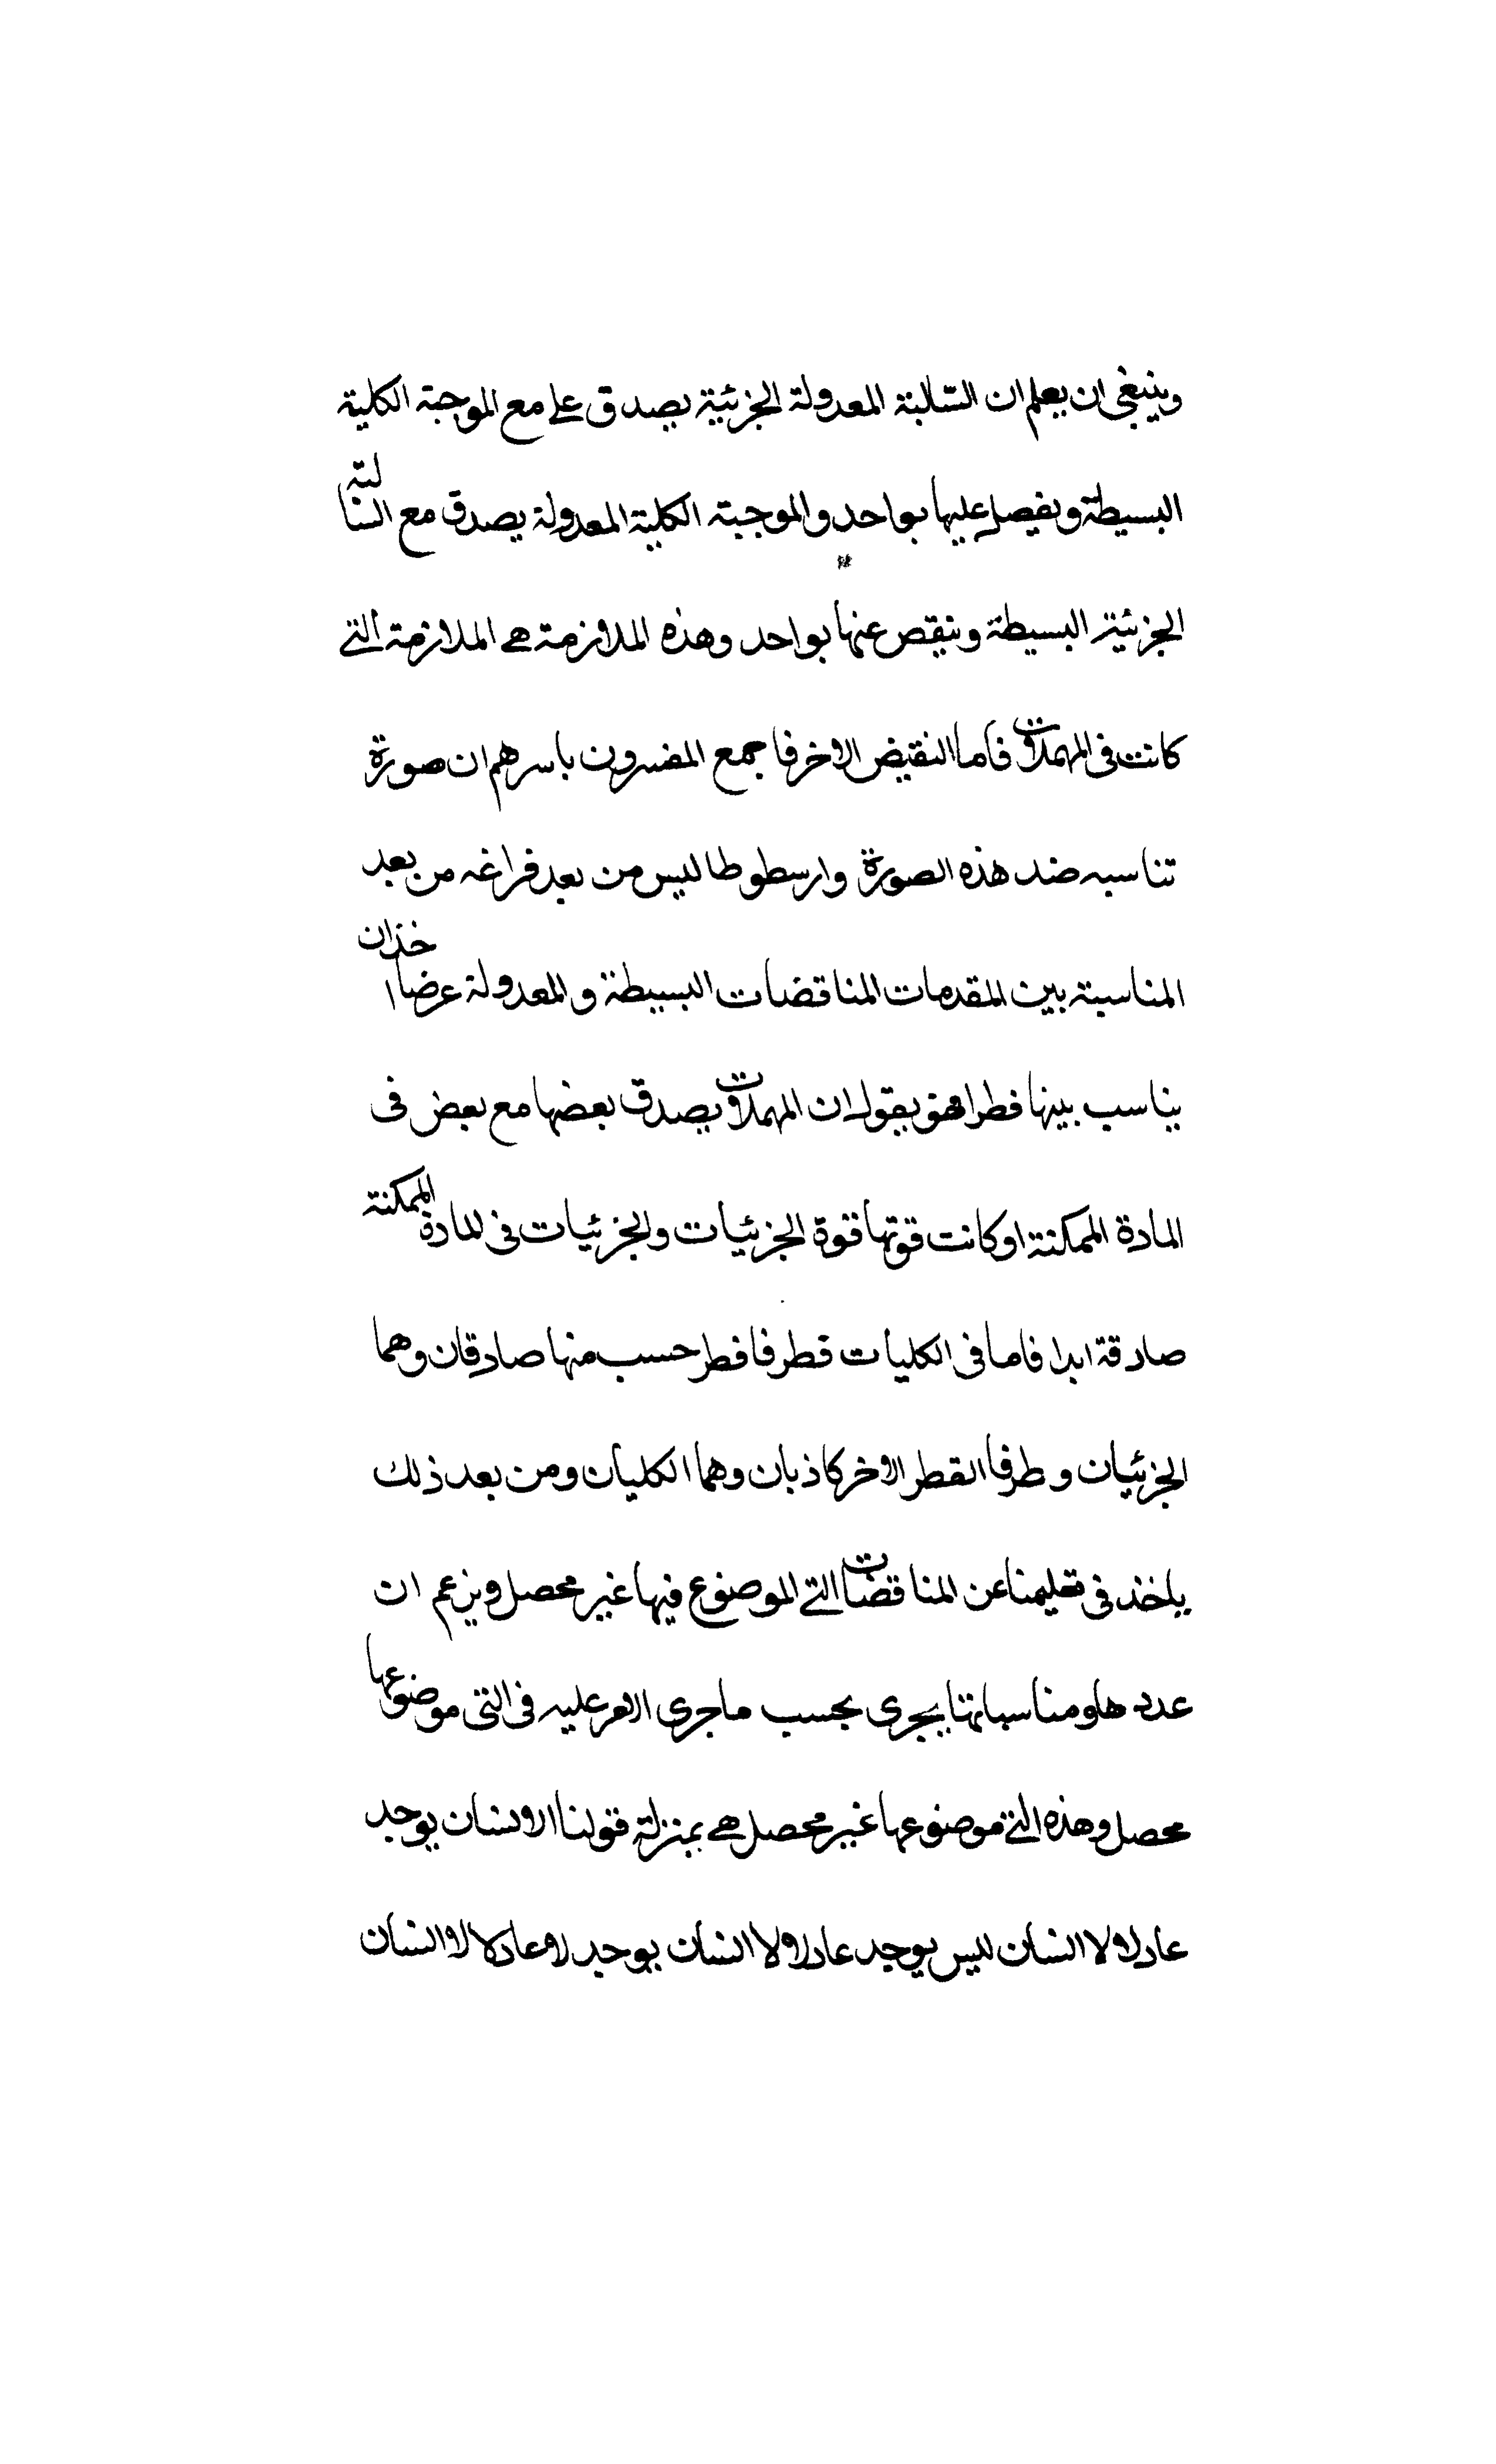 وينبغى ان يعلم ان السّالبة المعدولة الجزئية يصدق على مع الموجبة الكلية
البسيطة ويفصل عليها بواحد والموجبة الكلية المعدولة يصدق مع السالبة
الجزئية البسيطة وينقص عنها بواحد وهذه الملازمة هى الملازمة التى
كانت فى المهملات فأما النقيض الاخر فاجمع المفسرون باسرهم ان صورة
تناسبه ضد هذه الصورة وارسطوطاليس من بعد فراغه من بعد
المناسبة بين المقدمات المناقضات البسيطة والمعدولة عرضا خذ ان
يناسب بينها قطرا فهو يقول ان المهملات يصدق بعضها مع بعض فى
المادة الممكنة اوكانت قوتها قوة الجزئيات والجزئيات فى المادة الممكنة
صادقة ابدا فاما فى الكليات قطرفا قطر حسب منها صادقان وهما
الجزئيان وطرفا القطر الاخر كاذبان وهما الكليان ومن بعد ذلك
ياخذ فى تعليمنا عن المناقضات التى الموضوع فيها غير محصل ويزعم ان
عددها ومناسباتها يجرى بحسب ماجرى الامر عليه فى التى موضوعها
محصل وهذه التى موضوعها غير محصل هى بمنزلة قولنا الاانسان يوجد
عادلا ولا انسان ليس يوجد عادلا ولا انسان يوجد لاعادلا لا انسان